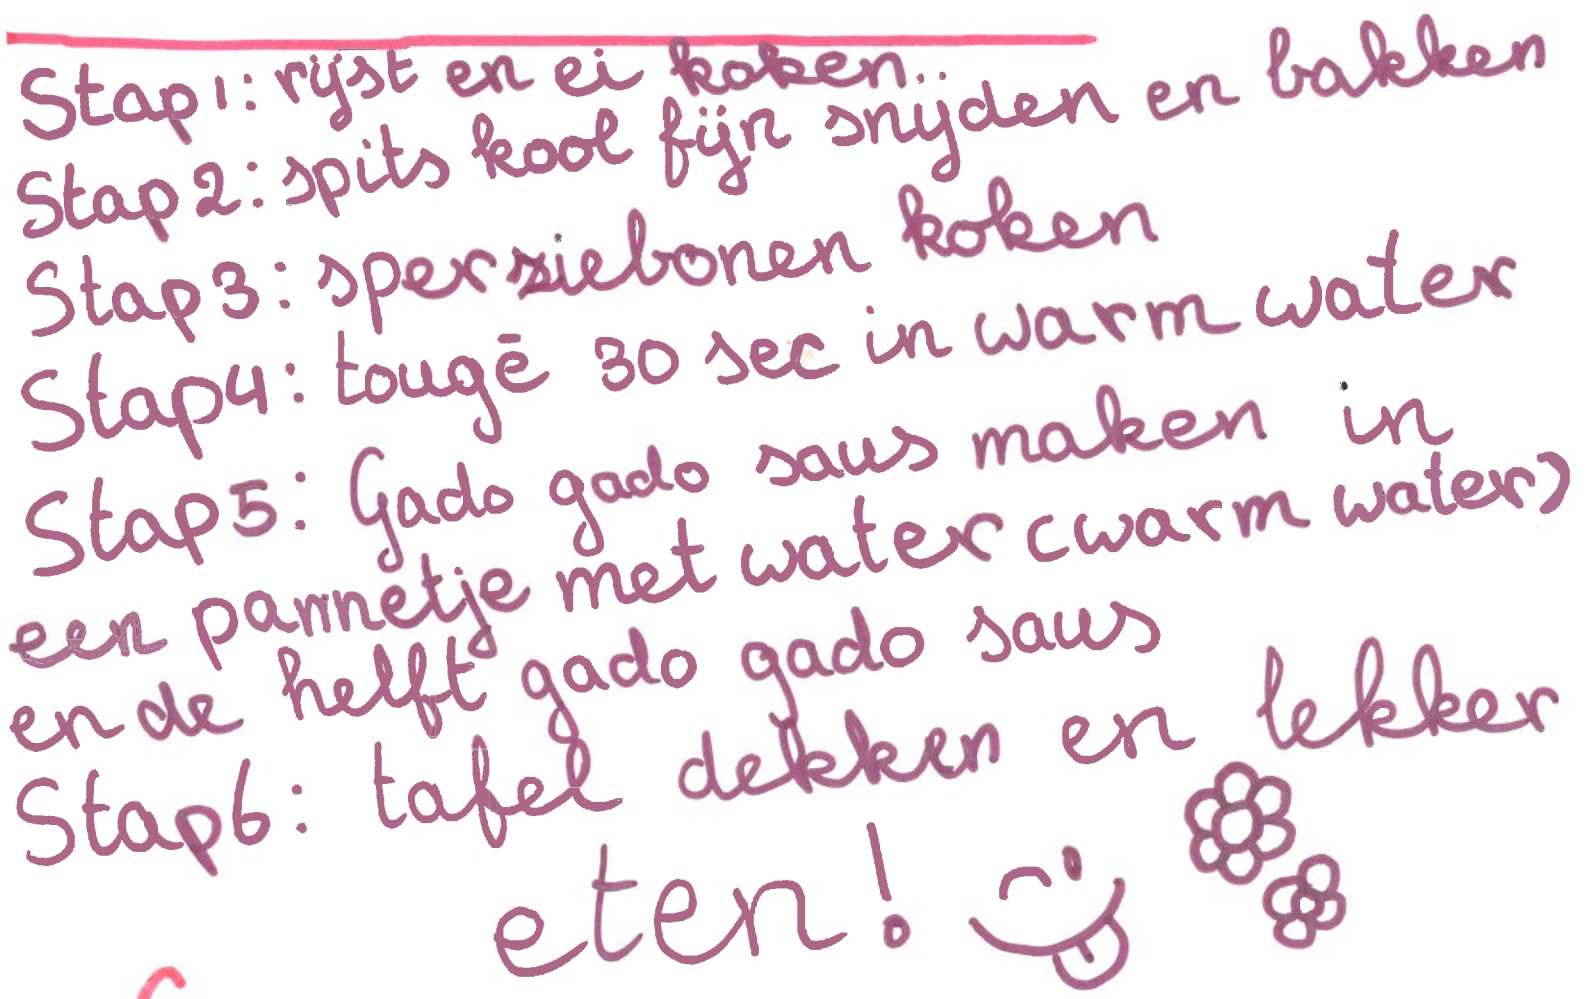 Stap 1: rijst en ei koken..
Stap 2: spits kool fijn snijden en bakken
Stap 3: sperziebonen koken
Stap 4: tougē 30 sec in warm water
Stap 5: Gado gado saus maken in
een pannetje met water (warm water)
en de helft gado gado saus
Stap 6: tafel dekken en lekker
eten!